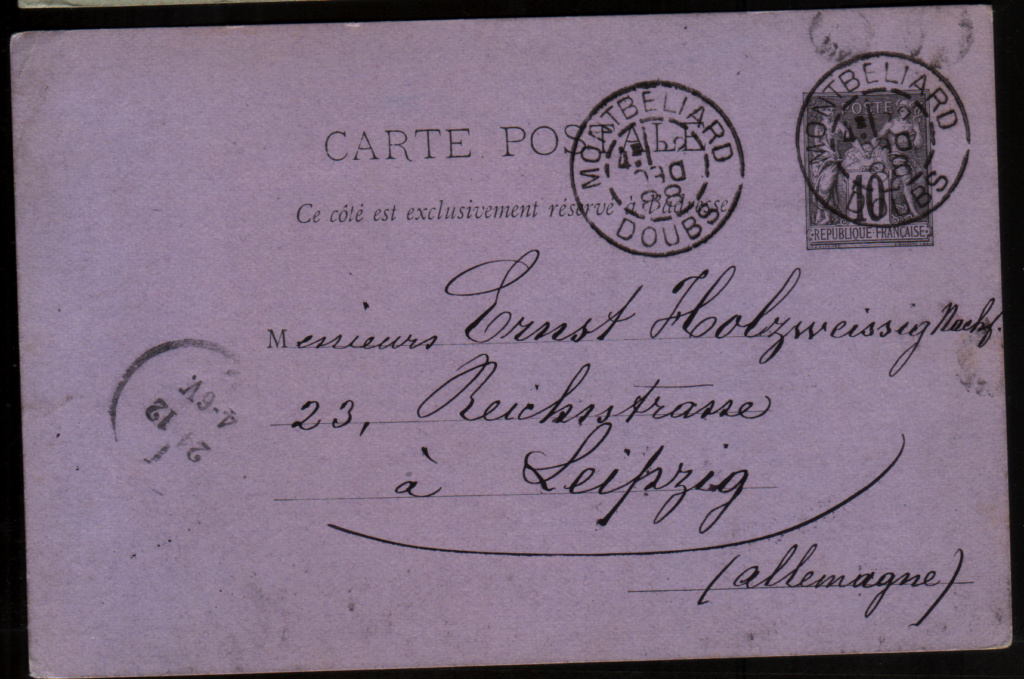 CARTE POSTALE
Ce côté est exclusivement réservé à l'adresse
POSTES
10
REPUBLIQUE FRANÇAISE
MONTBELIARD
DEC
88
DOUBS
MONTBELIARD
DEC
88
DOUBS
Messieurs Ernst Holzweissig Nachf.
23, Reichsstrasse
à Leipzig
(allemagne)
24 12
4-6V.